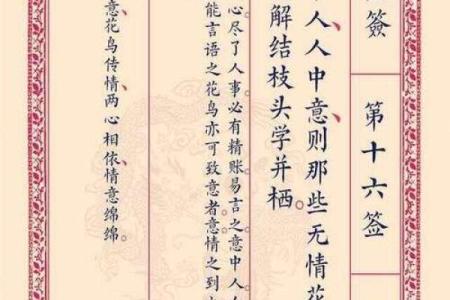 簽
第十六签
人人中意、则那些无情花
解结枝头学并栖。
心尽了人事必有精账易言之意中人人
能言语之花鸟亦可致意者意情之到
意花鸟传情两心相依情意绵绵。